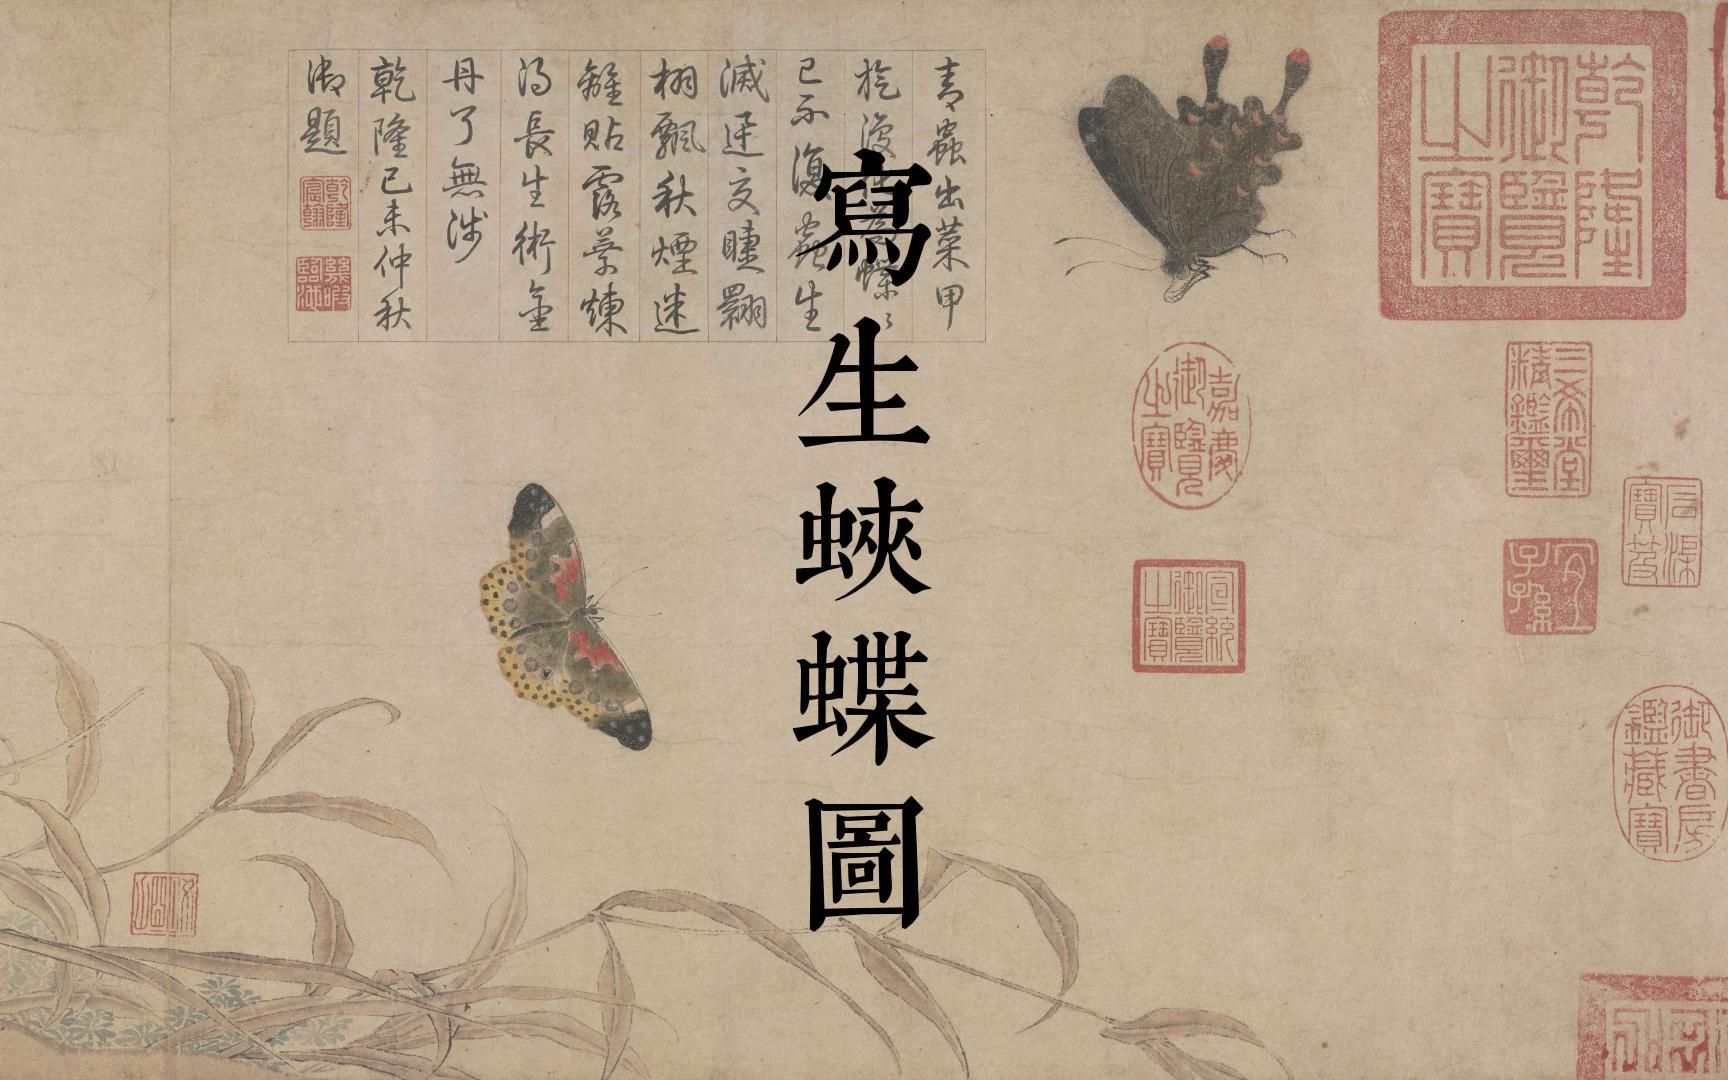 寫生蛺蝶圖
青蟲出菜甲
已不復蟲生
滅逆交睫翾
栩飄秋煙迷
離貼露蕚煉
得長生術金
丹了無涉
乾隆己未仲秋
御題
乾隆宸翰
乾隆御覽之寶
嘉慶御覽之寶
宣統御覽之寶
三希堂精鑑璽
宜子孫
石渠寶笈
御書房鑑藏寶